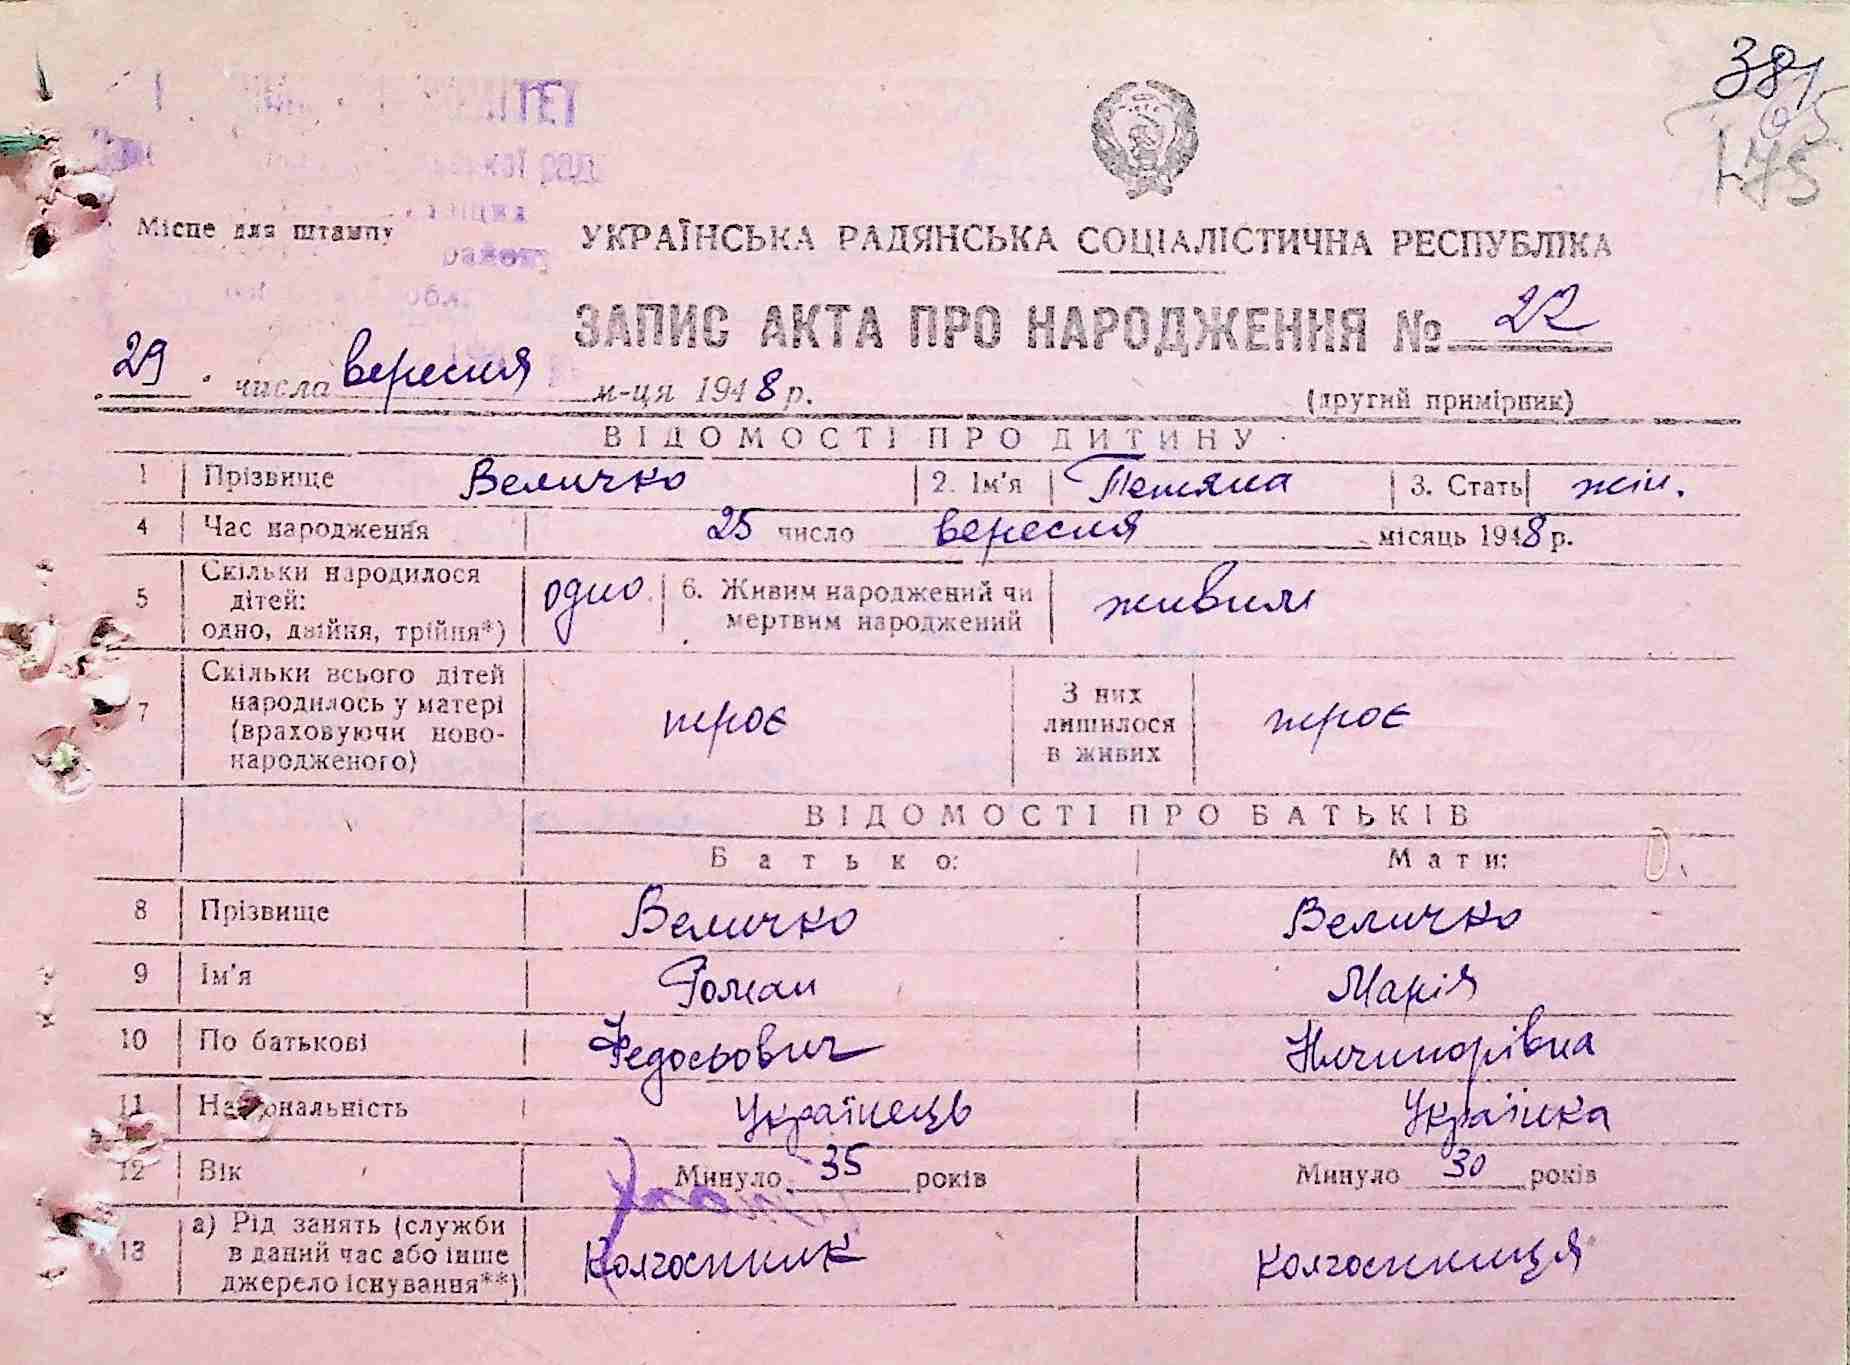 381
05
175
ТЕТ
кої рад
Місце для штампу
УКРАЇНСЬКА РАДЯНСЬКА СОЦІАЛІСТИЧНА РЕСПУБЛІКА
району
обл.
ЗАПИС АКТА ПРО НАРОДЖЕННЯ № 22
29 числа вересня м-ця 1948 р.
(другий примірник)
ВІДОМОСТІ ПРО ДИТИНУ
1 Прізвище Величко 2. Ім'я Тетяна 3. Стать жін.
4 Час народження 25 число вересня місяць 1948 р.
5 Скільки народилося дітей: одно, двійня, трійня*) одно 6. Живим народжений чи мертвим народжений живим
7 Скільки всього дітей народилось у матері (враховуючи новонародженого) троє З них лишилося в живих троє
ВІДОМОСТІ ПРО БАТЬКІВ
Батько: Мати:
8 Прізвище Величко Величко
9 Ім'я Роман Марія
10 По батькові Федосьович Ничипорівна
11 Національність Українець Українка
12 Вік Минуло 35 років Минуло 30 років
13 а) Рід занять (служби в даний час або інше джерело існування**) Колгоспник Колгоспниця